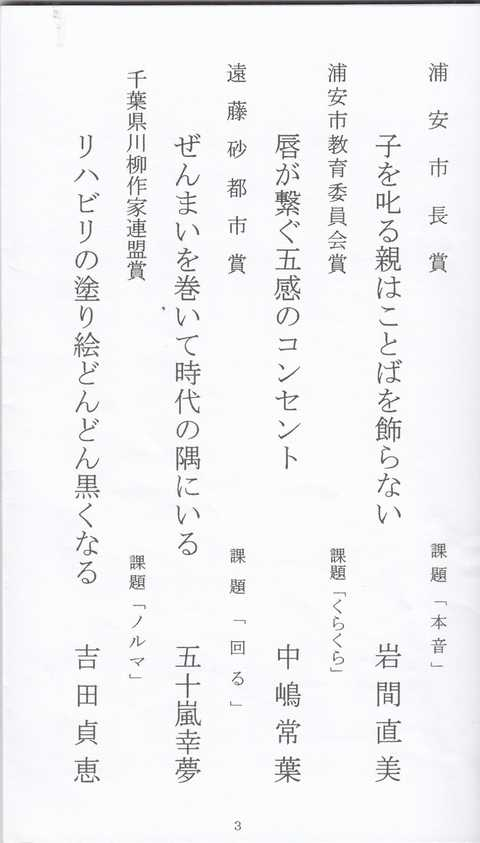 浦安市長賞
課題「本音」
子を叱る親はことばを飾らない
岩間直美
浦安市教育委員会賞
課題「くらくら」
唇が繋ぐ五感のコンセント
中嶋常葉
遠藤砂都市賞
課題「回る」
ぜんまいを巻いて時代の隅にいる
五十嵐幸夢
千葉県川柳作家連盟賞
課題「ノルマ」
リハビリの塗り絵どんどん黒くなる
吉田貞恵
3